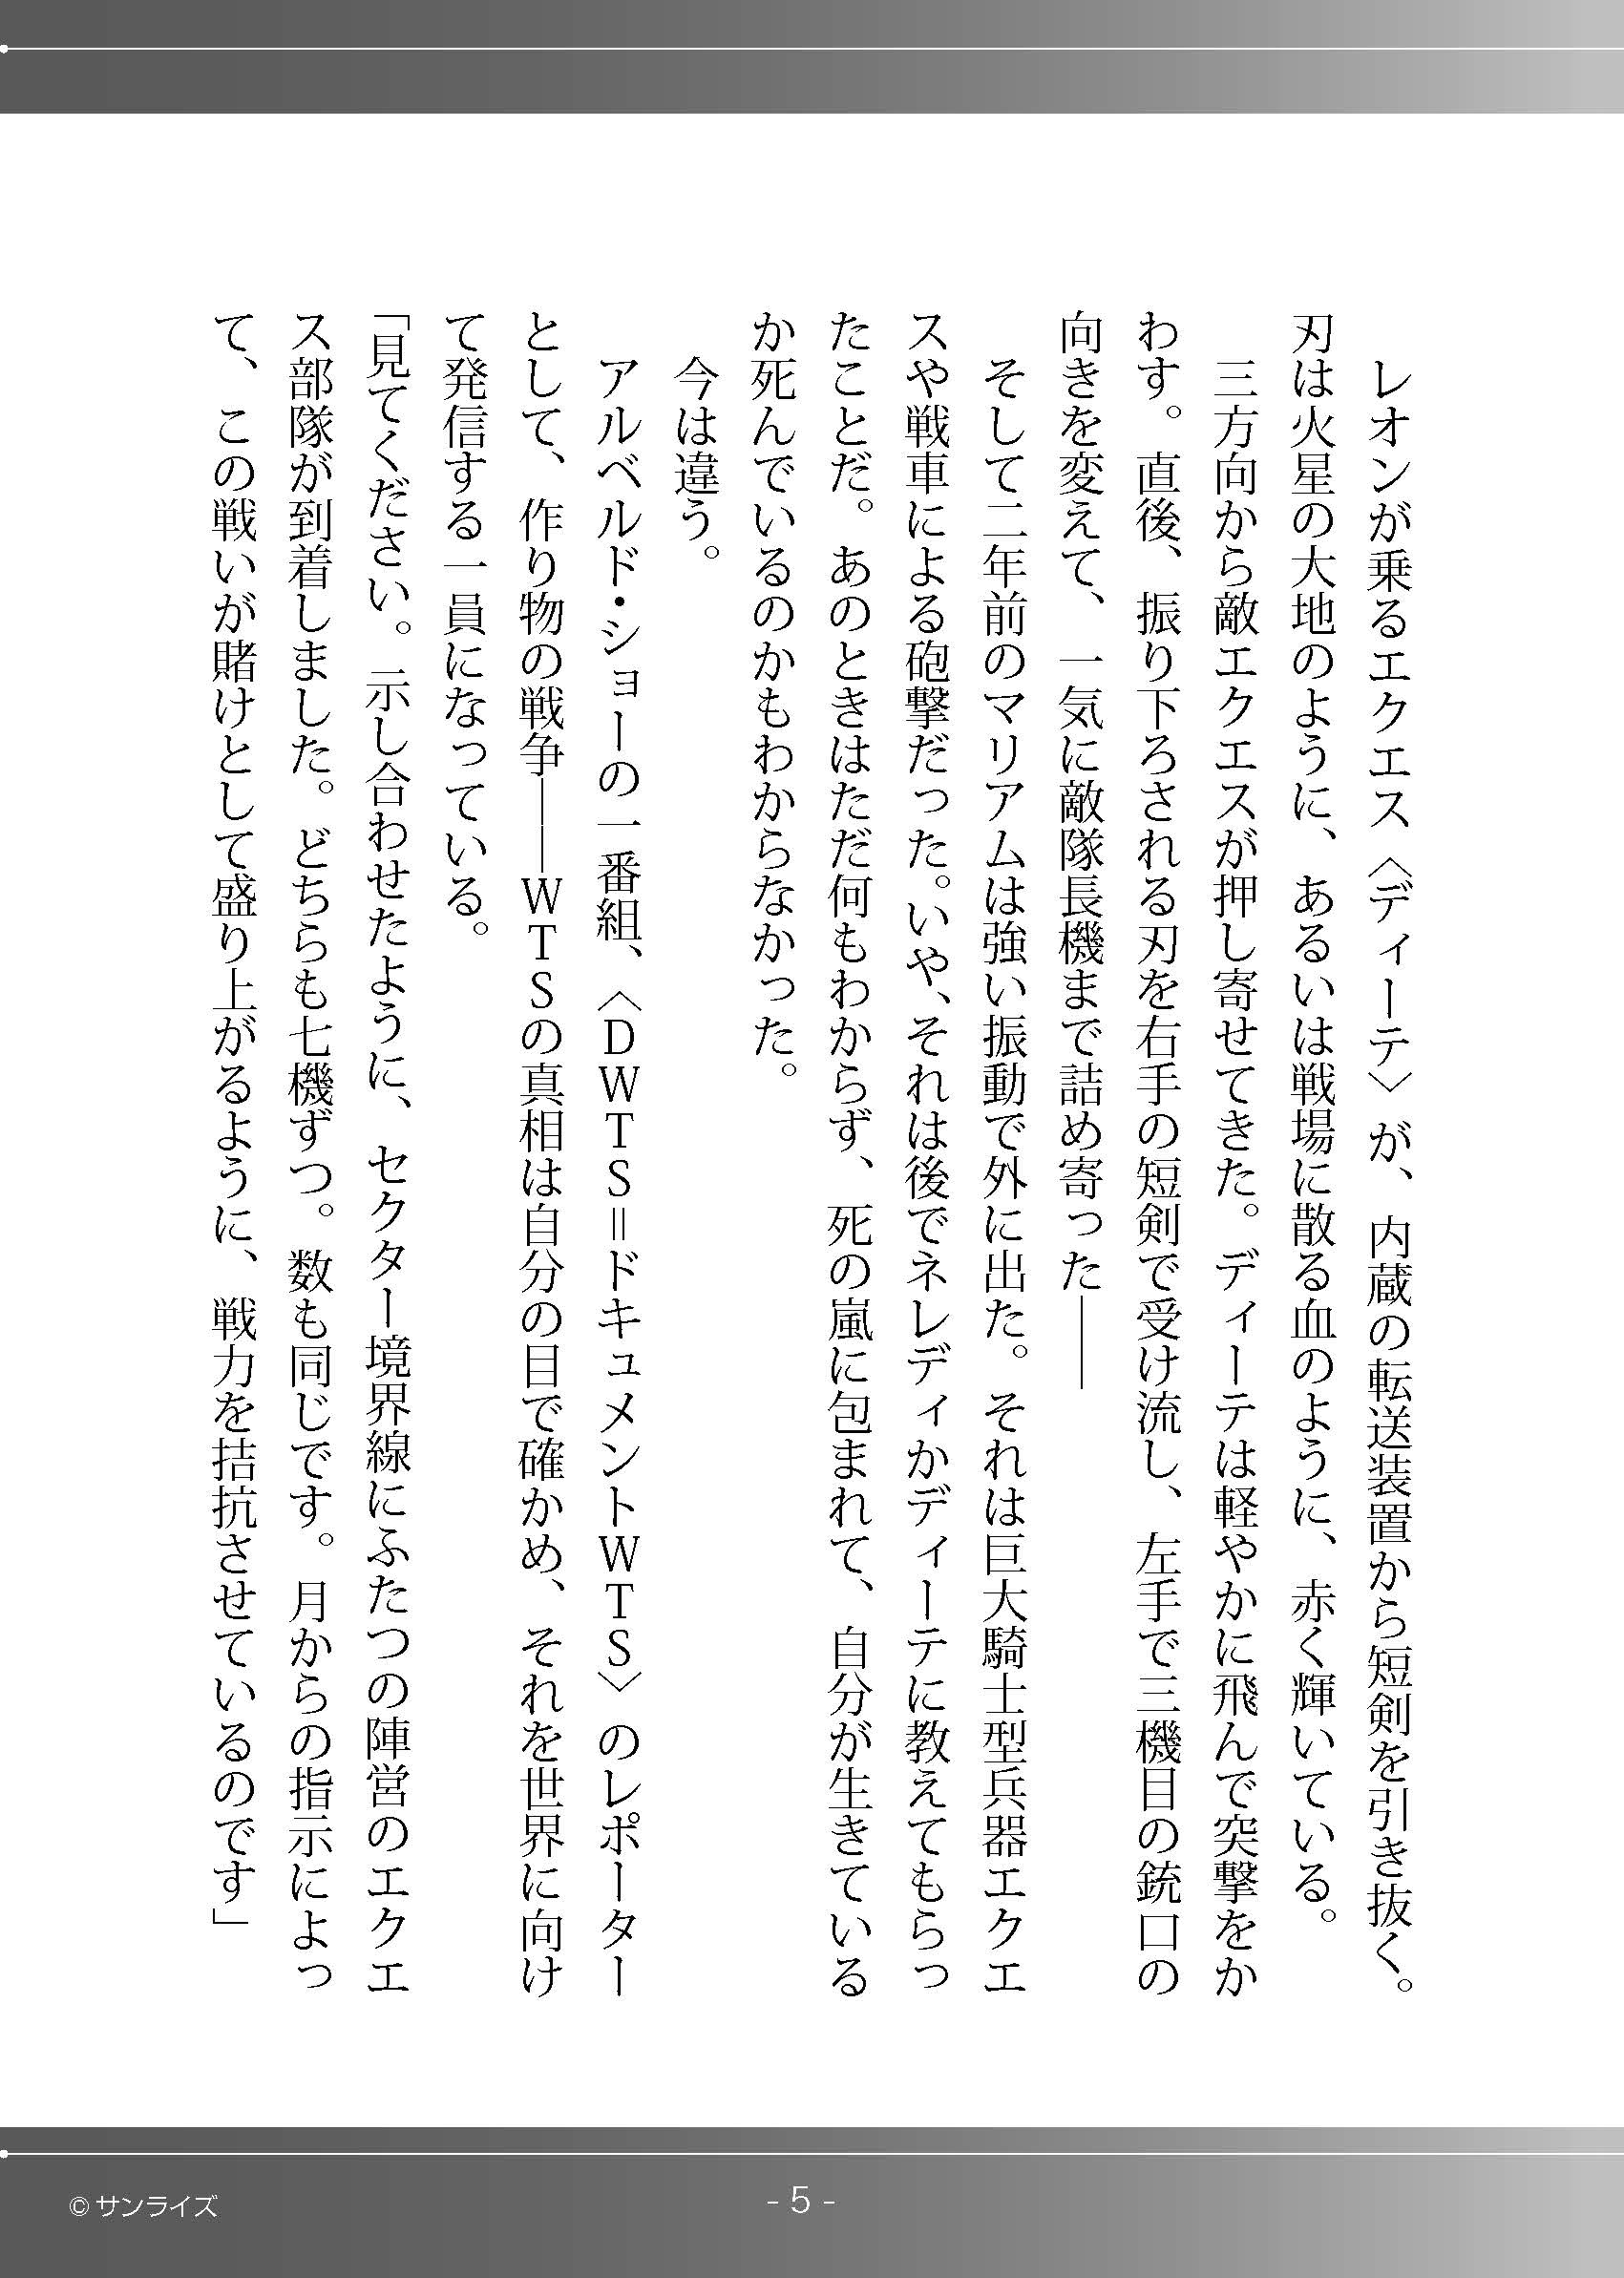 レオンが乗るエクエス〈ディーテ〉が、内蔵の転送装置から短剣を引き抜く。
刃は火星の大地のように、あるいは戦場に散る血のように、赤く輝いている。
　三方向から敵エクエスが押し寄せてきた。ディーテは軽やかに飛んで突撃をか
わす。直後、振り下ろされる刃を右手の短剣で受け流し、左手で三機目の銃口の
向きを変えて、一気に敵隊長機まで詰め寄った――
　そして二年前のマリアムは強い振動で外に出た。それは巨大騎士型兵器エクエ
スや戦車による砲撃だった。いや、それは後でネレディかディーテに教えてもらっ
たことだ。あのときはただ何もわからず、死の嵐に包まれて、自分が生きている
か死んでいるのかもわからなかった。
　今は違う。
　アルベルド・ショーの一番組、〈DWTS＝ドキュメントWTS〉のレポーター
として、作り物の戦争――WTSの真相は自分の目で確かめ、それを世界に向け
て発信する一員になっている。
「見てください。示し合わせたように、セクター境界線にふたつの陣営のエクエ
ス部隊が到着しました。どちらも七機ずつ。数も同じです。月からの指示によっ
て、この戦いが賭けとして盛り上がるように、戦力を拮抗させているのです」
© サンライズ
- 5 -